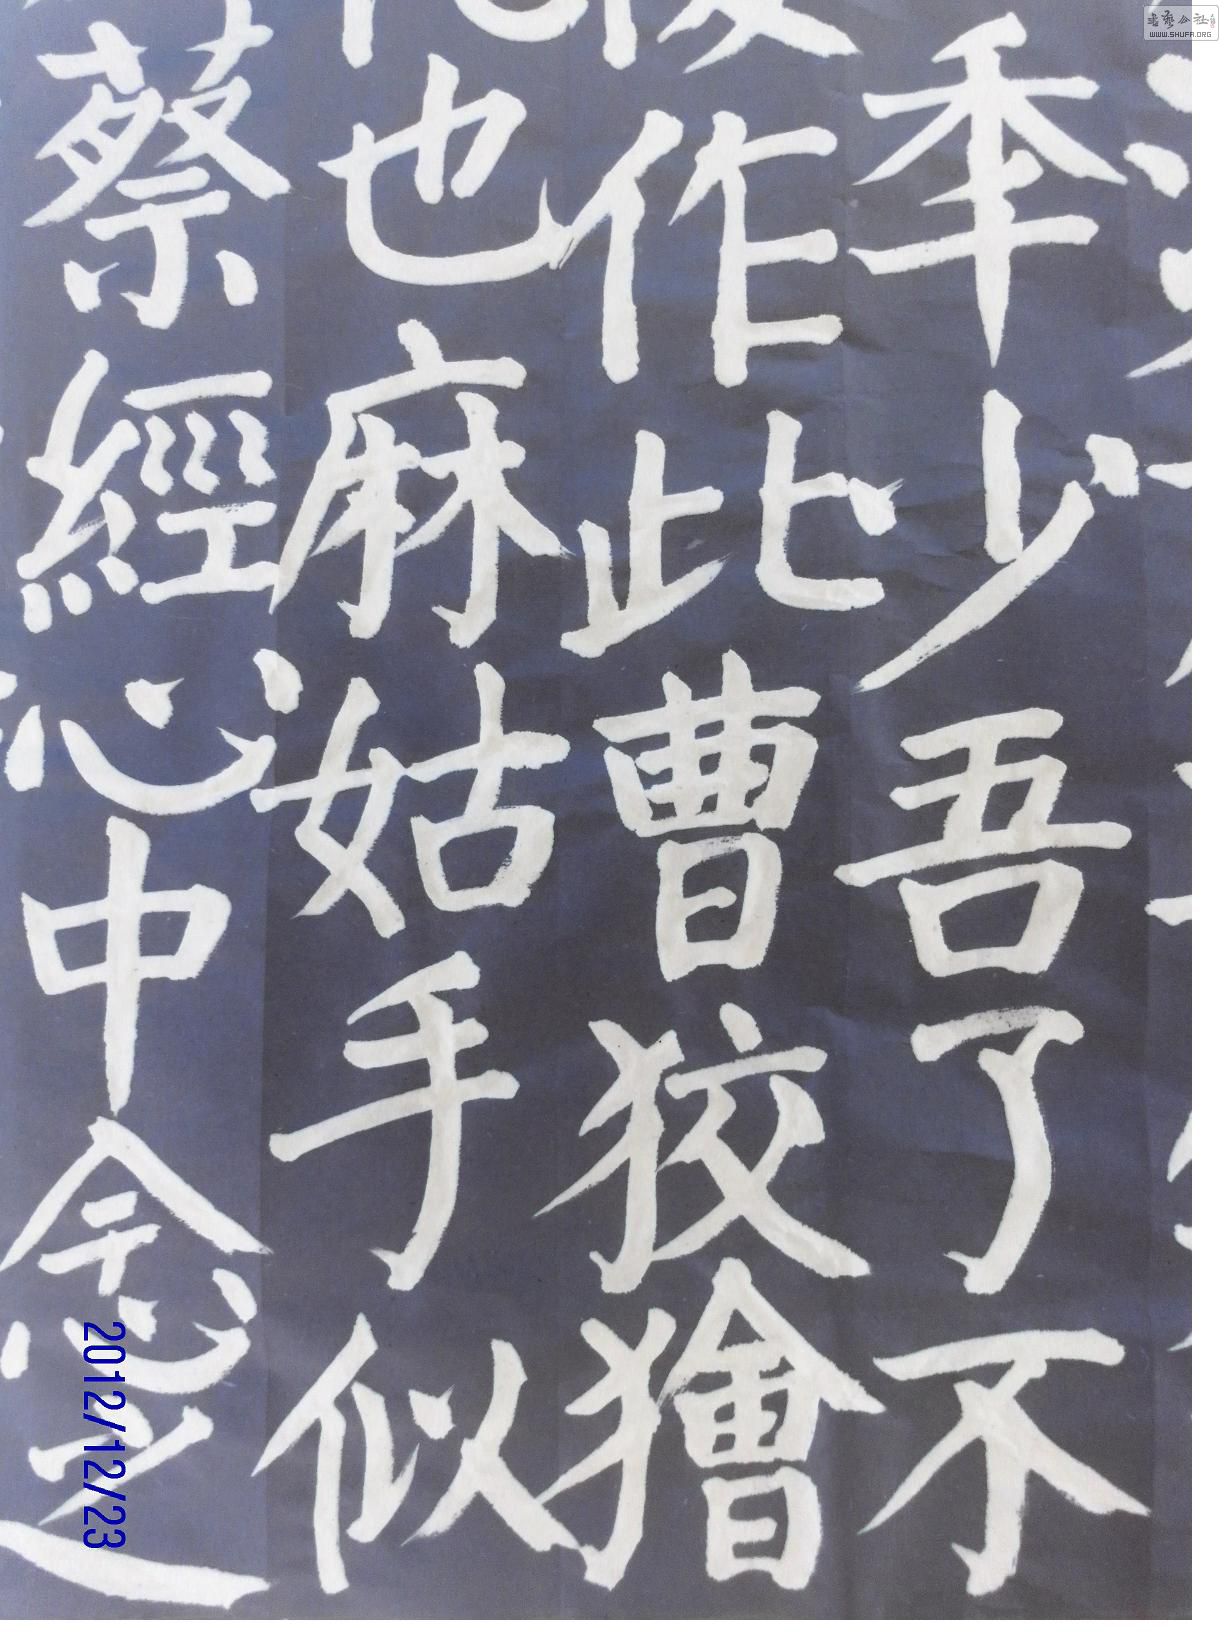 年少吾了不
復作此曹狡獪
也麻姑手似
蔡經心中念之
2012/12/23
書藝公社
WWW.SHUFA.ORG